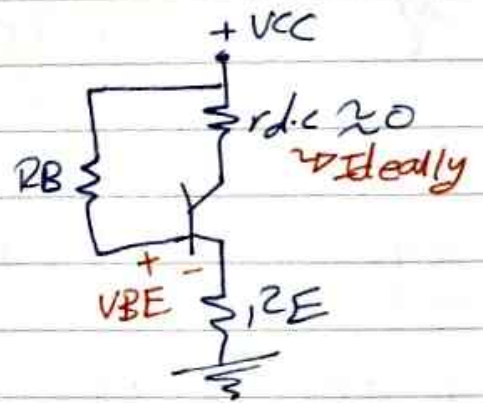 + VCC
rd.c ≈ 0
Ideally
RB
+ -
VBE
RE